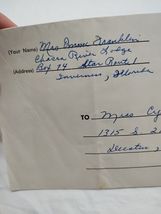 (Your Name) Mrs Franklin
Chassa River Lodge
(Address) Box 74 Star Route 1
Inverness, Florida
TO Miss
1315 S
Decatur,